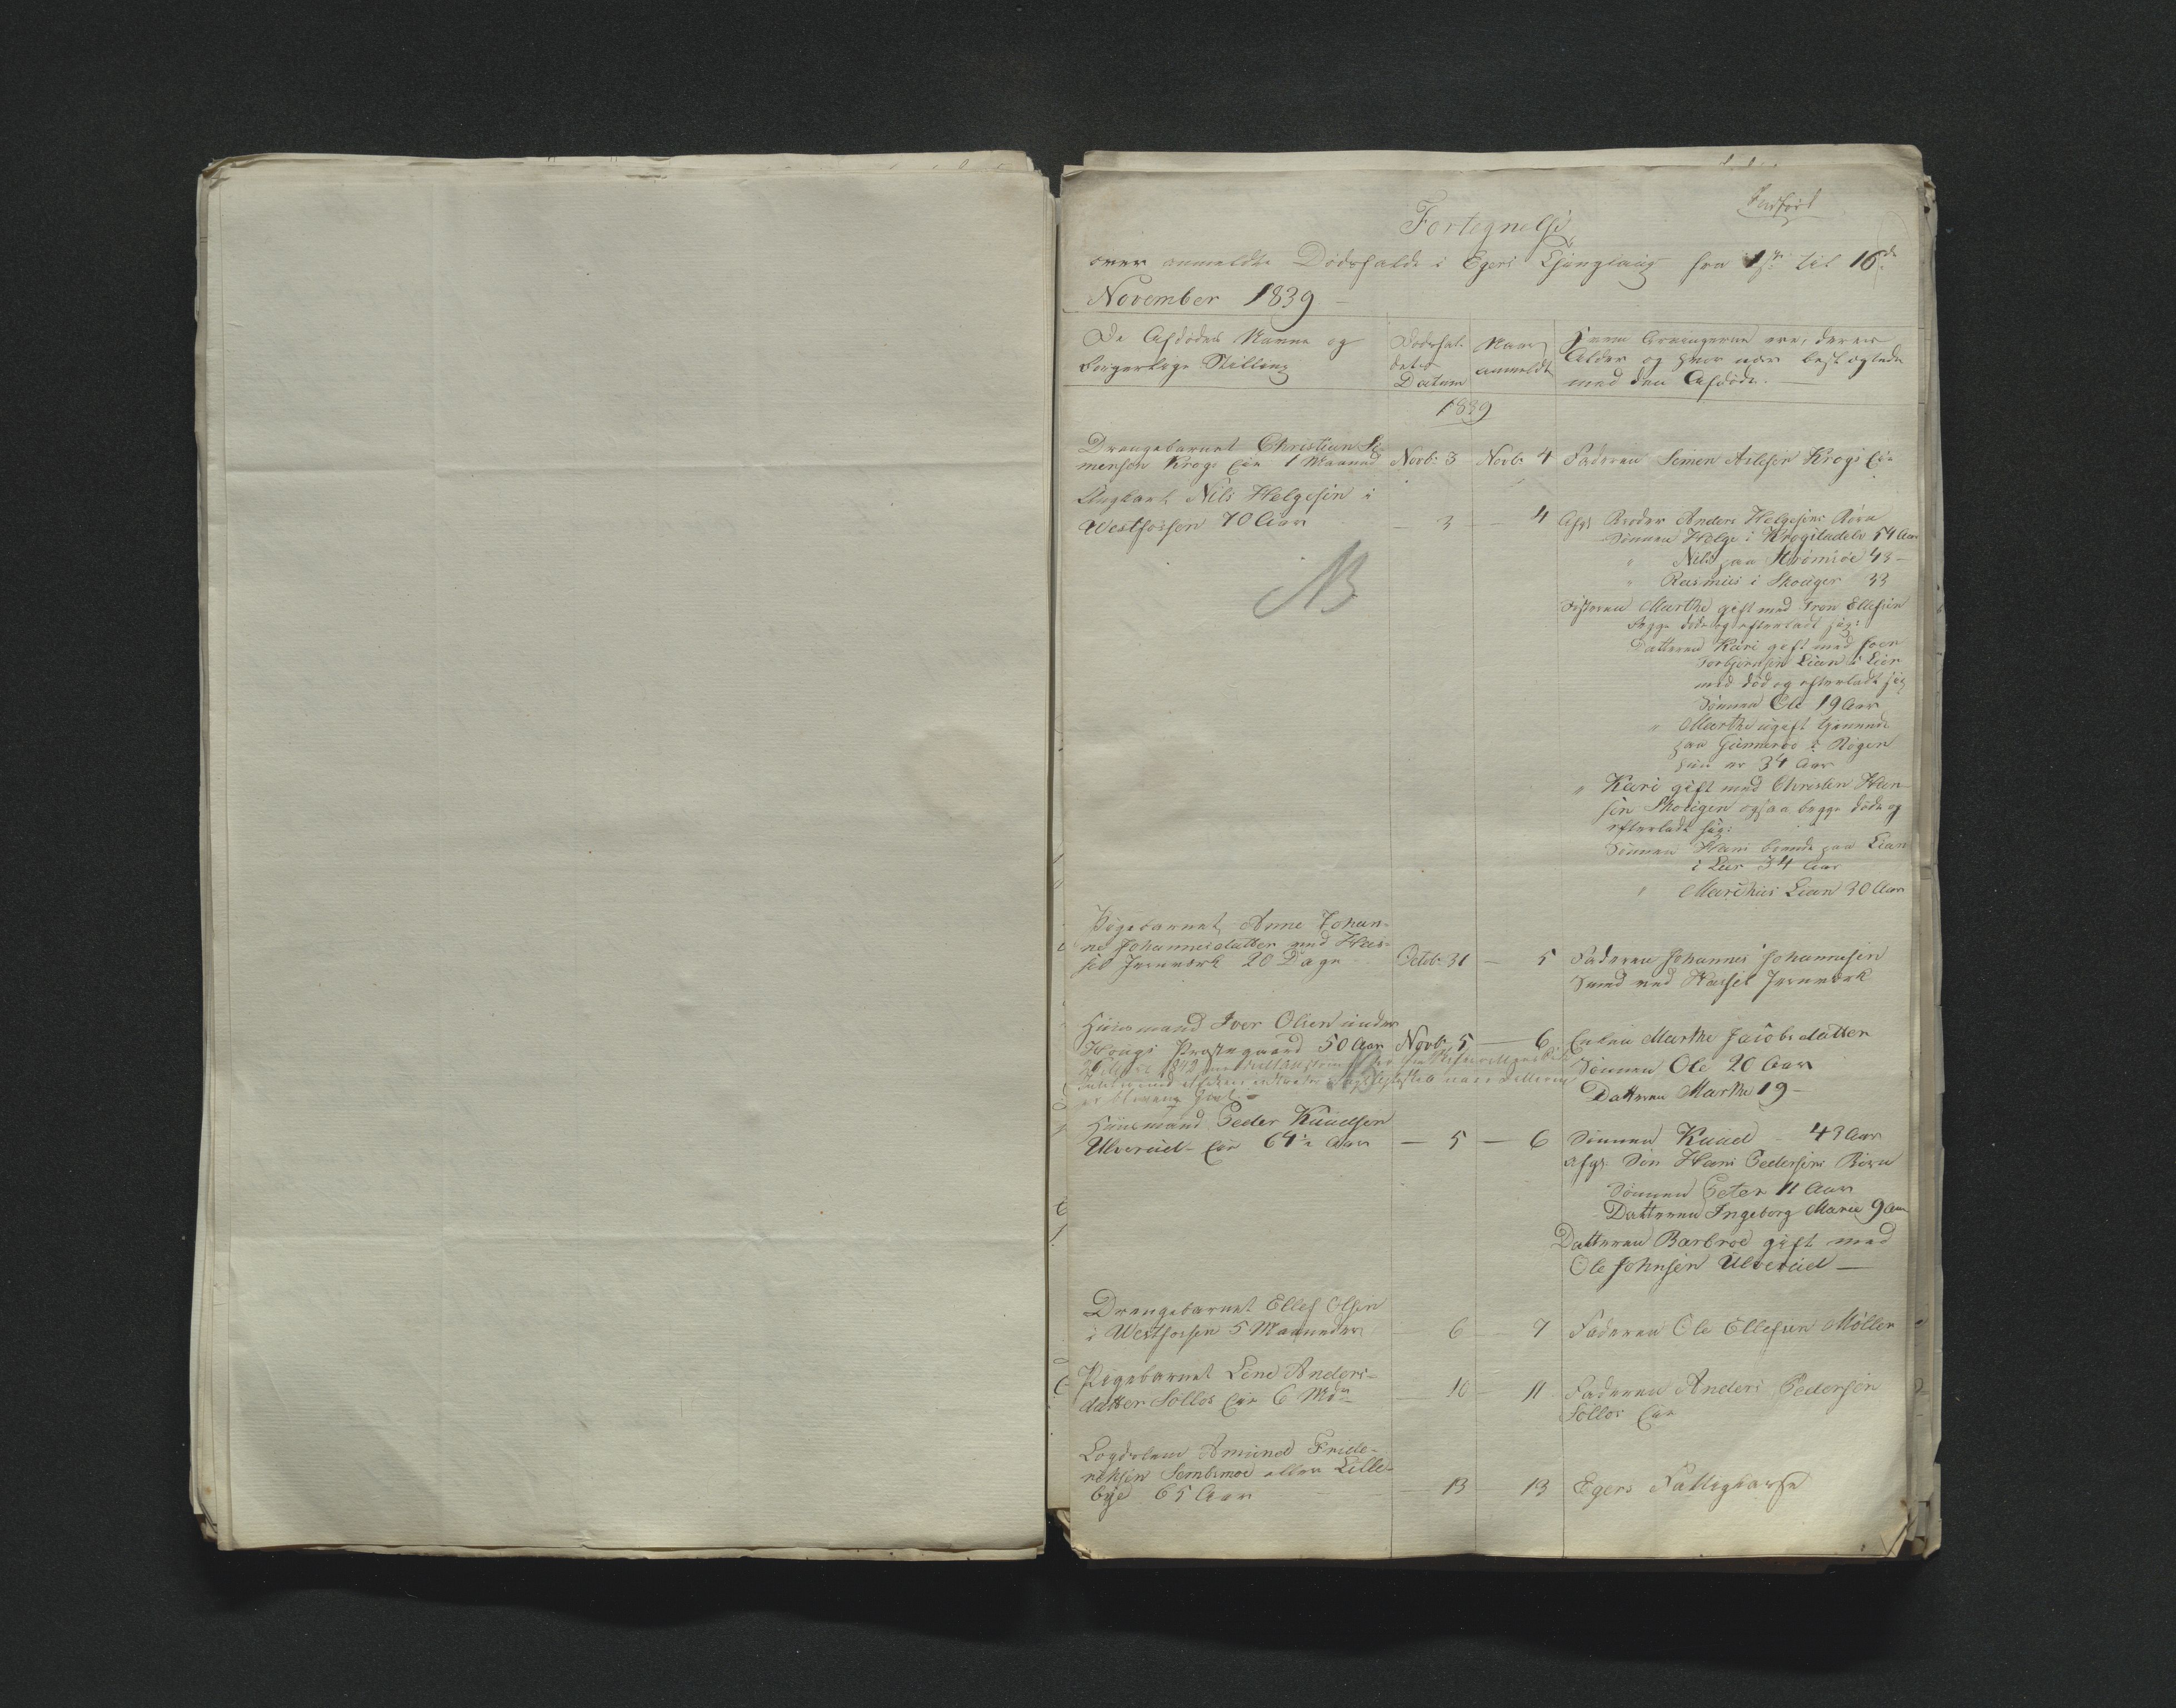 Fortegnelse
over anmeldte Dødsfald i Egers Thinglaug fra 1ste til 16de
November 1839
De Afdødes Navne og borgerlige Stilling
Dødsfaldets Datum
Naar anmeldt
Hvem Arvingerne ere, deres Alder og hvor nær beslægtede med den Afdøde.
1839
Drengebarnet Christian Si-
mensen Krogs Eie 1 Maaned Novb. 3 Novb. 4 Faderen Simen Arlesen Krogs Eie
Ungkarl Nils Helgesen i
Westfossen 70 Aar — 3 — 4 Afg. Broder Anders Helgesens Børn
Sønnen Helge i Krogstadelv 54 Aar
" Nils paa Strømsøe 43 —
" Rasmus i Skouger 33
NB
Søsteren Marthe gift med Tron Ellefsen
begge døde og efterladt sig:
Datteren Kari gift med Joen
Torbjørnsen Lian i Lier
med død og efterladt sig
Sønnen Ole 19 Aar
" Marthe ugift tjenende
paa Gunnerød i Røgen
hun er 34 Aar
" Kari gift med Christen Han-
sen Skougen ogsaa begge døde og
efterladt sig:
Sønnen Hans boende paa Lian
i Lier 34 Aar
" Marthias Lian 30 Aar
Pigebarnet Anne Johan-
ne Johannesdatter ved Has-
sel Jernværk 20 Dage Octob. 31 — 5 Faderen Johannes Johannesen
Smed ved Hassel Jernværk
Huusmand Iver Olsen under
Hougs Præstegaard 50 Aar Novb. 5 — 6 Enken Marthe Jacobsdatter
Sønnen Ole 20 Aar
Datteren Marthe 19 —
er bleven gift
Huusmand Peder Knudsen
Ulverud Eie 64½ Aar — 5 — 6 Sønnen Knud — 43 Aar
Afg. Søn Hans Pedersens Børn
Sønnen Peter 11 Aar
Datteren Ingeborg Marie 9 Aar
Datteren Barbroe gift med
Ole Johnsen Ulverud —
Drengebarnet Ellef Olsen
i Westfossen 5 Maaneder — 6 — 7 Faderen Ole Ellefsen Møller
Pigebarnet Lene Anders-
datter Sollos Eie 6 Mdr — 10 — 11 Faderen Anders Pedersen
Sollos Eie
Lægdslem Amund Fride-
richsen Sembsmoe eller Lille-
bye 65 Aar — 13 — 13 Egers Fattigkasse